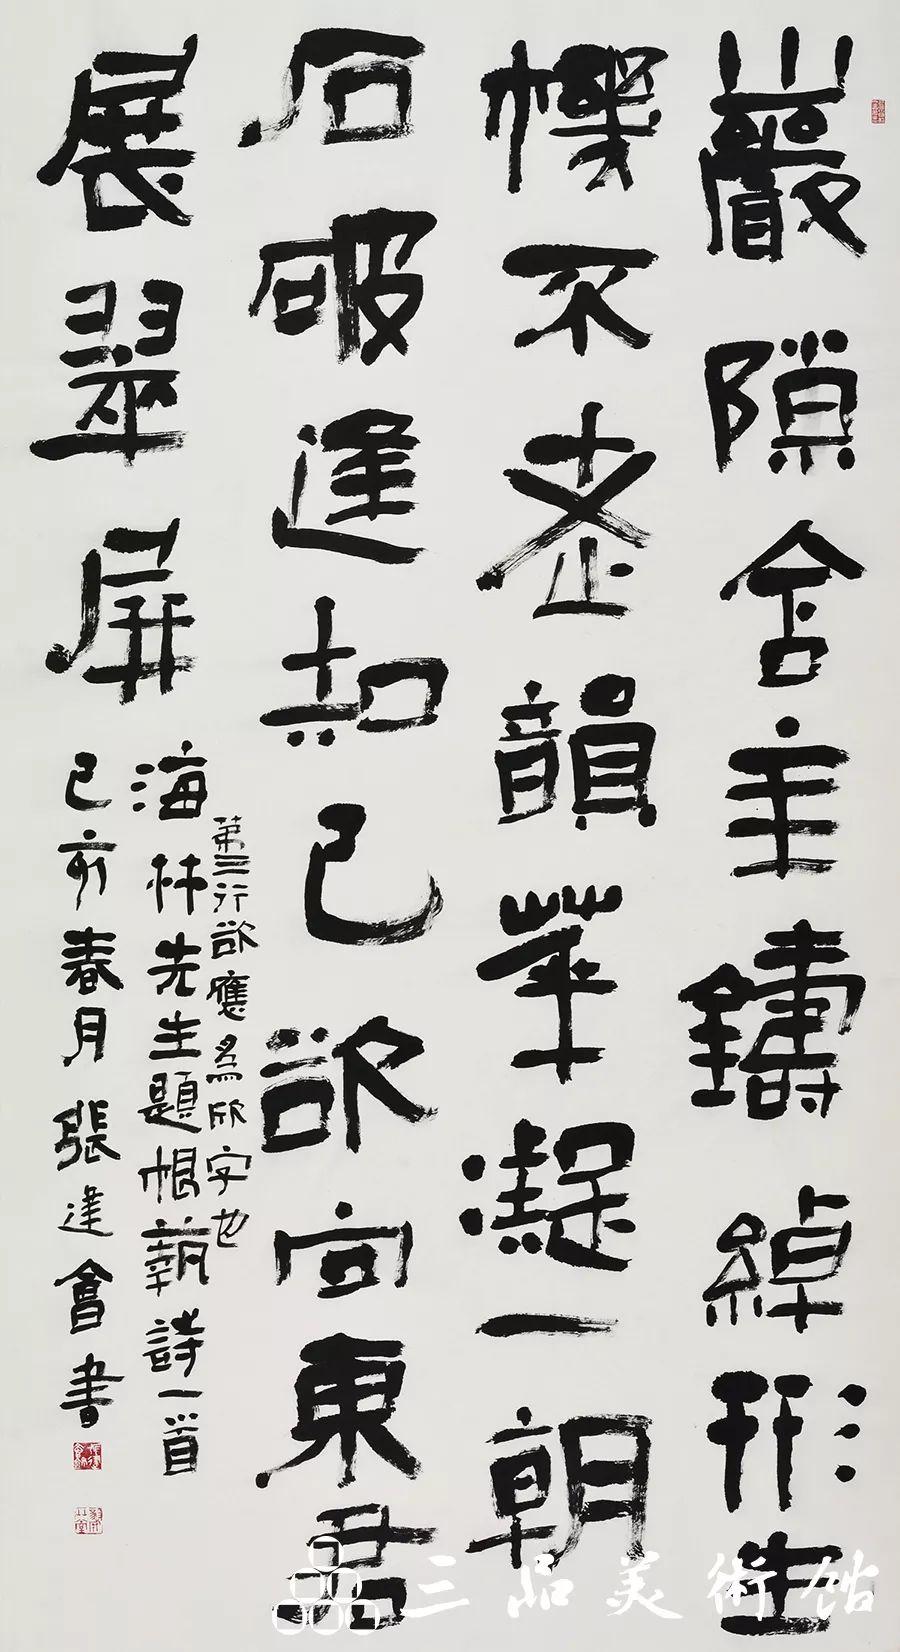 巖隙含辛鑄綽形生
機不老韻華凝一朝
石破逢知己欲向東君
展翠屏
第三行欲應為欣字也
海林先生題根藝詩一首
己亥春月張建會書
三品美術館